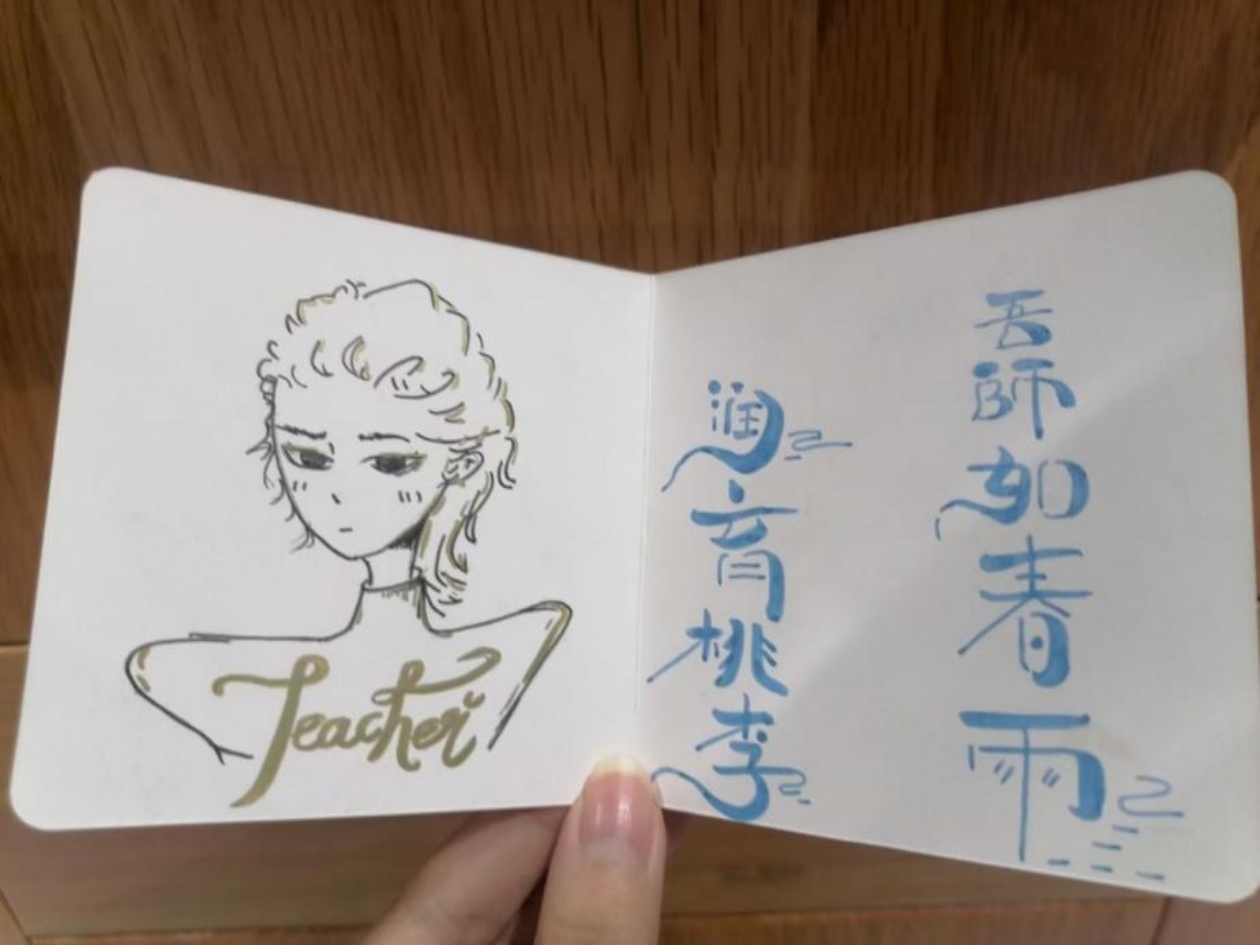 Teacher
吾師如春雨
润育桃李